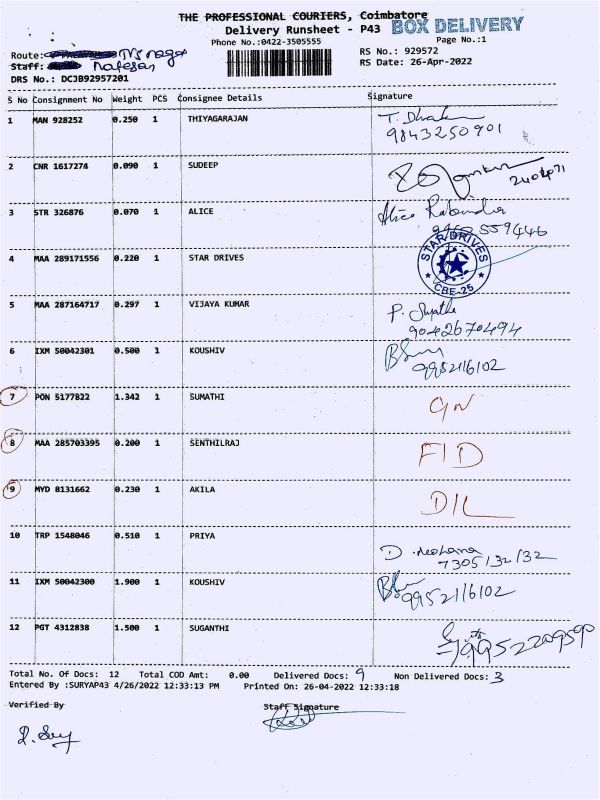 THE PROFESSIONAL COURIERS, Coimbatore
Delivery Runsheet - P43 BOX DELIVERY
Phone No.:0422-3505555 Page No.:1
Route: RS No.: 929572
Staff: Natesan RS Date: 26-Apr-2022
DRS No.: DCJB92957201
S No Consignment No Weight PCS Consignee Details Signature
1 MAN 928252 0.250 1 THIYAGARAJAN
9843250901
2 CNR 1617274 0.090 1 SUDEEP
3 STR 326876 0.070 1 ALICE Alice
4 MAA 289171556 0.220 1 STAR DRIVES STAR DRIVES
CBE-25
5 MAA 287164717 0.297 1 VIJAYA KUMAR
9042670494
6 IXM 50042301 0.500 1 KOUSHIV
9952116102
7 PON 5177822 1.342 1 SUMATHI
8 MAA 285703395 0.200 1 SENTHILRAJ
9 MYD 8131662 0.230 1 AKILA
10 TRP 1548046 0.510 1 PRIYA
7305132132
11 IXM 50042300 1.900 1 KOUSHIV 9952116102
12 PGT 4312838 1.500 1 SUGANTHI
Total No. Of Docs: 12 Total COD Amt: 0.00 Delivered Docs: 9 Non Delivered Docs: 3
Entered By :SURYAP43 4/26/2022 12:33:13 PM Printed On: 26-04-2022 12:33:18
Verified By Staff Signature